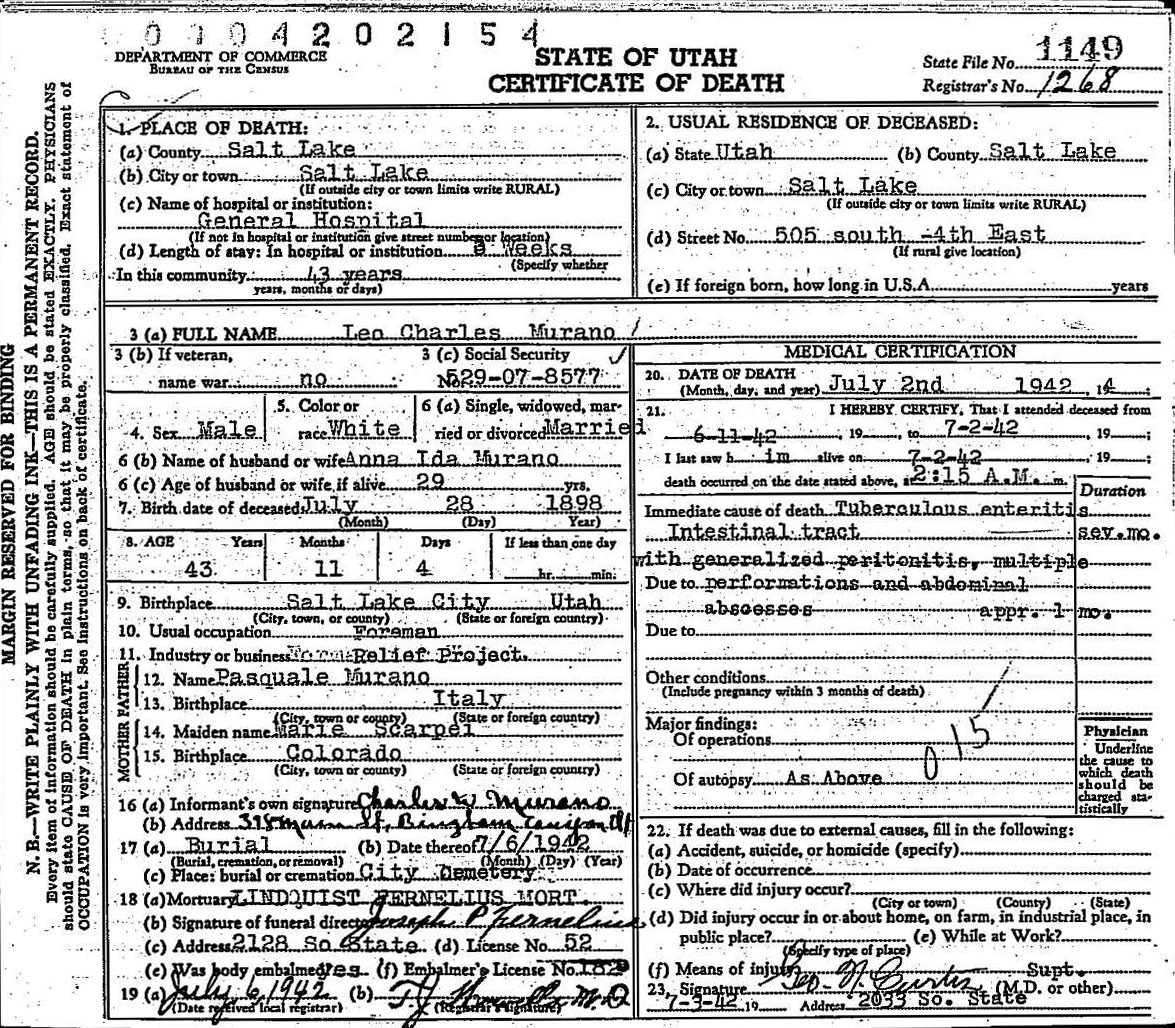 0 1 0 4 2 0 2 1 5 4
DEPARTMENT OF COMMERCE
BUREAU OF THE CENSUS
STATE OF UTAH
CERTIFICATE OF DEATH
State File No. 1149
Registrar's No. 1268
MARGIN RESERVED FOR BINDING
N. B.—WRITE PLAINLY WITH UNFADING INK—THIS IS A PERMANENT RECORD.
Every item of information should be carefully supplied. AGE should be stated EXACTLY. PHYSICIANS
should state CAUSE OF DEATH in plain terms, so that it may be properly classified. Exact statement of
OCCUPATION is very important. See instructions on back of certificate.
1. PLACE OF DEATH:
(a) County Salt Lake
(b) City or town Salt Lake
(If outside city or town limits write RURAL)
(c) Name of hospital or institution:
General Hospital
(If not in hospital or institution give street number or location)
(d) Length of stay: In hospital or institution Weeks
(Specify whether
In this community 43 years
years, months or days)
2. USUAL RESIDENCE OF DECEASED:
(a) State Utah (b) County Salt Lake
(c) City or town Salt Lake
(If outside city or town limits write RURAL)
(d) Street No. 505 south -4th East
(If rural give location)
(e) If foreign born, how long in U.S.A. years
3 (a) FULL NAME Leo Charles Murano
3 (b) If veteran,
name war no
3 (c) Social Security
No. 529-07-8577
4. Sex Male
5. Color or
race White
6 (a) Single, widowed, mar-
ried or divorced Married
6 (b) Name of husband or wife Anna Ida Murano
6 (c) Age of husband or wife if alive 29 yrs.
7. Birth date of deceased July 28 1898
(Month) (Day) Year)
8. AGE Years Months Days If less than one day
43 11 4 hr. min.
9. Birthplace Salt Lake City Utah
(City, town, or county) (State or foreign country)
10. Usual occupation Foreman
11. Industry or business Relief Project.
FATHER
12. Name Pasquale Murano
13. Birthplace Italy
(City, town or county) (State or foreign country)
MOTHER
14. Maiden name Marie Scarpei
15. Birthplace Colorado
(City, town or county) (State or foreign country)
16 (a) Informant's own signature Charles W Murano
(b) Address 398 Main St, Bingham Canyon Ut
17 (a) Burial (b) Date thereof 7/6/1942
(Burial, cremation, or removal) (Month) (Day) (Year)
(c) Place: burial or cremation City Cemetery
18 (a) Mortuary LINDQUIST FERNELIUS MORT.
(b) Signature of funeral director Joseph P. Fernelius
(c) Address 2128 So State (d) License No. 52
(e) Was body embalmed Yes (f) Embalmer's License No. 182
19 (a) July 6, 1942 (b) M.D
(Date received local registrar) (Registrar's signature)
MEDICAL CERTIFICATION
20. DATE OF DEATH
(Month, day, and year) July 2nd 1942 19
21. I HEREBY CERTIFY, That I attended deceased from
6-11-42, 19 to 7-2-42, 19 ;
I last saw h im alive on 7-2-42, 19 ;
death occurred on the date stated above, at 2:15 A.M. m.
Duration
Immediate cause of death Tuberculous enteritis
Intestinal tract sev.mo.
with generalized peritonitis, multiple
Due to performations and abdominal
abscesses appr. 1 mo.
Due to
Other conditions
(Include pregnancy within 3 months of death)
Major findings:
Of operations
015
Of autopsy As Above
Physician
Underline
the cause to
which death
should be
charged sta-
tistically
22. If death was due to external causes, fill in the following:
(a) Accident, suicide, or homicide (specify)
(b) Date of occurrence
(c) Where did injury occur?
(City or town) (County) (State)
(d) Did injury occur in or about home, on farm, in industrial place, in
public place? (e) While at Work?
(Specify type of place)
(f) Means of injury
23. Signature Geo N. Curtis Supt. (M.D. or other)
7-3-42 19 Address 2033 So. State